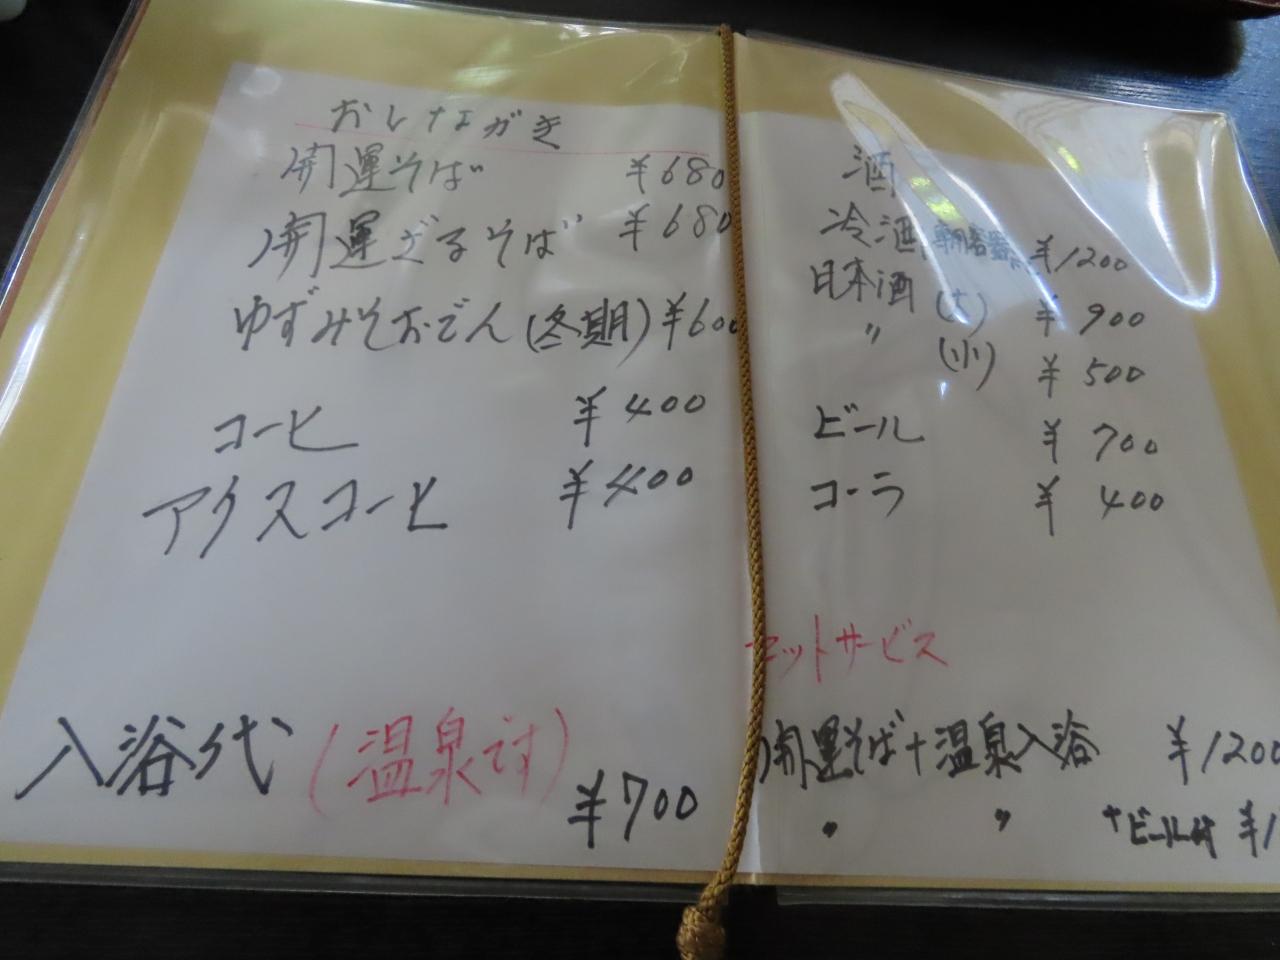 おしながき
開運そば ¥680
開運ざるそば ¥680
ゆずみそおでん(冬期) ¥600
コーヒ ¥400
アイスコーヒ ¥400
入浴代(温泉です) ¥700
酒
冷酒 専用容器 ¥1200
日本酒 (大) ¥900
〃 (小) ¥500
ビール ¥700
コーラ ¥400
セットサービス
開運そば+温泉入浴 ¥1200
〃 〃 +ビール付 ¥1